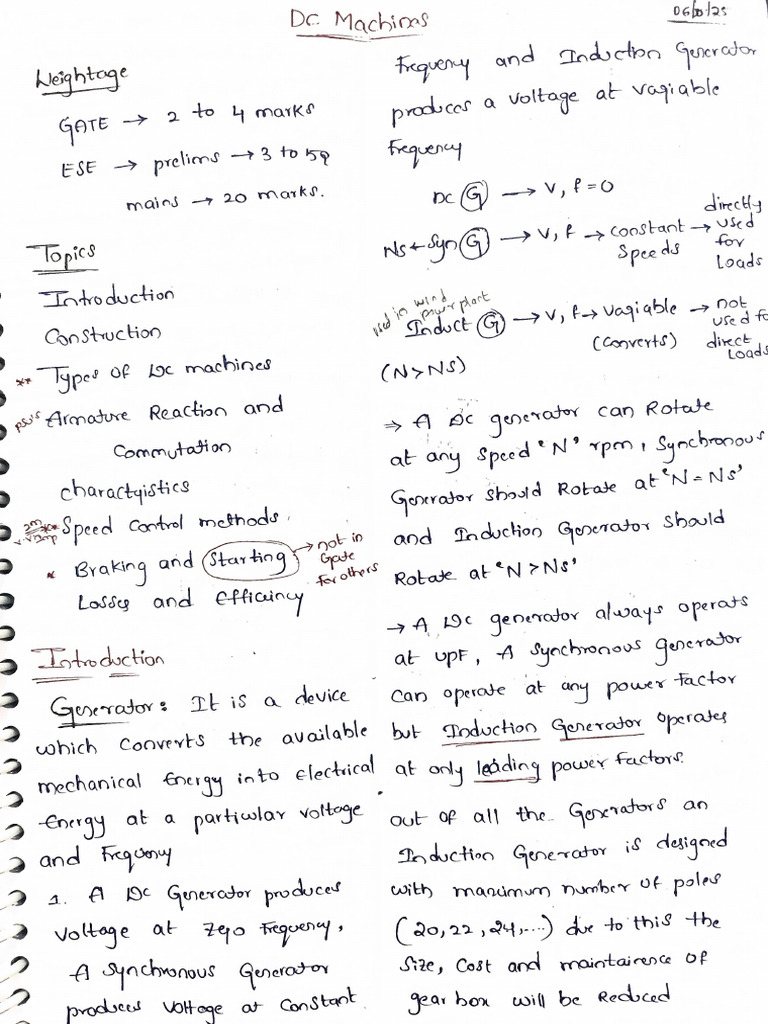 Dc Machines
06/10/25
Weightage
GATE → 2 to 4 marks
ESE → prelims → 3 to 5q
mains → 20 marks.
Topics
Introduction
Construction
** Types of Dc machines
psu's Armature Reaction and
Commutation
charactyistics
2m ** v.v.imp Speed Control methods.
* Braking and Starting → not in
Gate
for others
Losses and Efficiency
Introduction
Generator: It is a device
which converts the available
mechanical Energy into Electrical
Energy at a particular voltage
and Frequency
1. A Dc Generator produces
voltage at Zero Frequency,
A Synchronous Generator
produces voltage at Constant
Frequency and Induction Generator
produces a voltage at variable
Frequency
DC G → V, f = 0
Ns ← Syn G → V, f → constant Speeds → directly used for Loads
used in wind power plant
Induct G → V, f → variable (converts) → not used fo direct Loads
(N > Ns)
⇒ A Dc generator can Rotate
at any Speed 'N' rpm, Synchronous
Generator Should Rotate at 'N = Ns'
and Induction Generator should
Rotate at 'N > Ns'
→ A Dc generator always operats
at UPF, A Synchronous generator
can operate at any power factor
but Induction Generator operates
at only leading power factors.
out of all the Generators an
Induction Generator is designed
with maximum number of poles
(20, 22, 24, ....) due to this the
Size, Cost and maintairence of
gear box will be Reduced